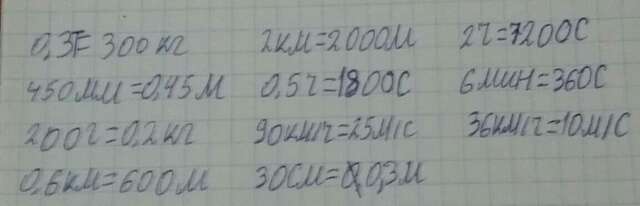 0,3т= 300 кг 2км=2000м 2ч=7200с
450мм=0,45м 0,5ч=1800с 6мин=360с
200г=0,2кг 90км/ч=25м/с 36км/ч=10м/с
0,6км=600м 30см=0,3м